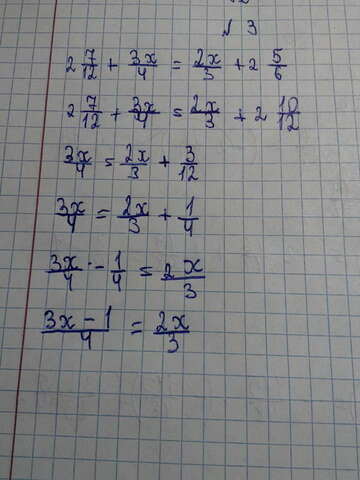 № 3
2 7/12 + 3x/4 = 2x/3 + 2 5/6
2 7/12 + 3x/4 = 2x/3 + 2 10/12
3x/4 = 2x/3 + 3/12
3x/4 = 2x/3 + 1/4
3x/4 - 1/4 = 2x/3
3x - 1/4 = 2x/3